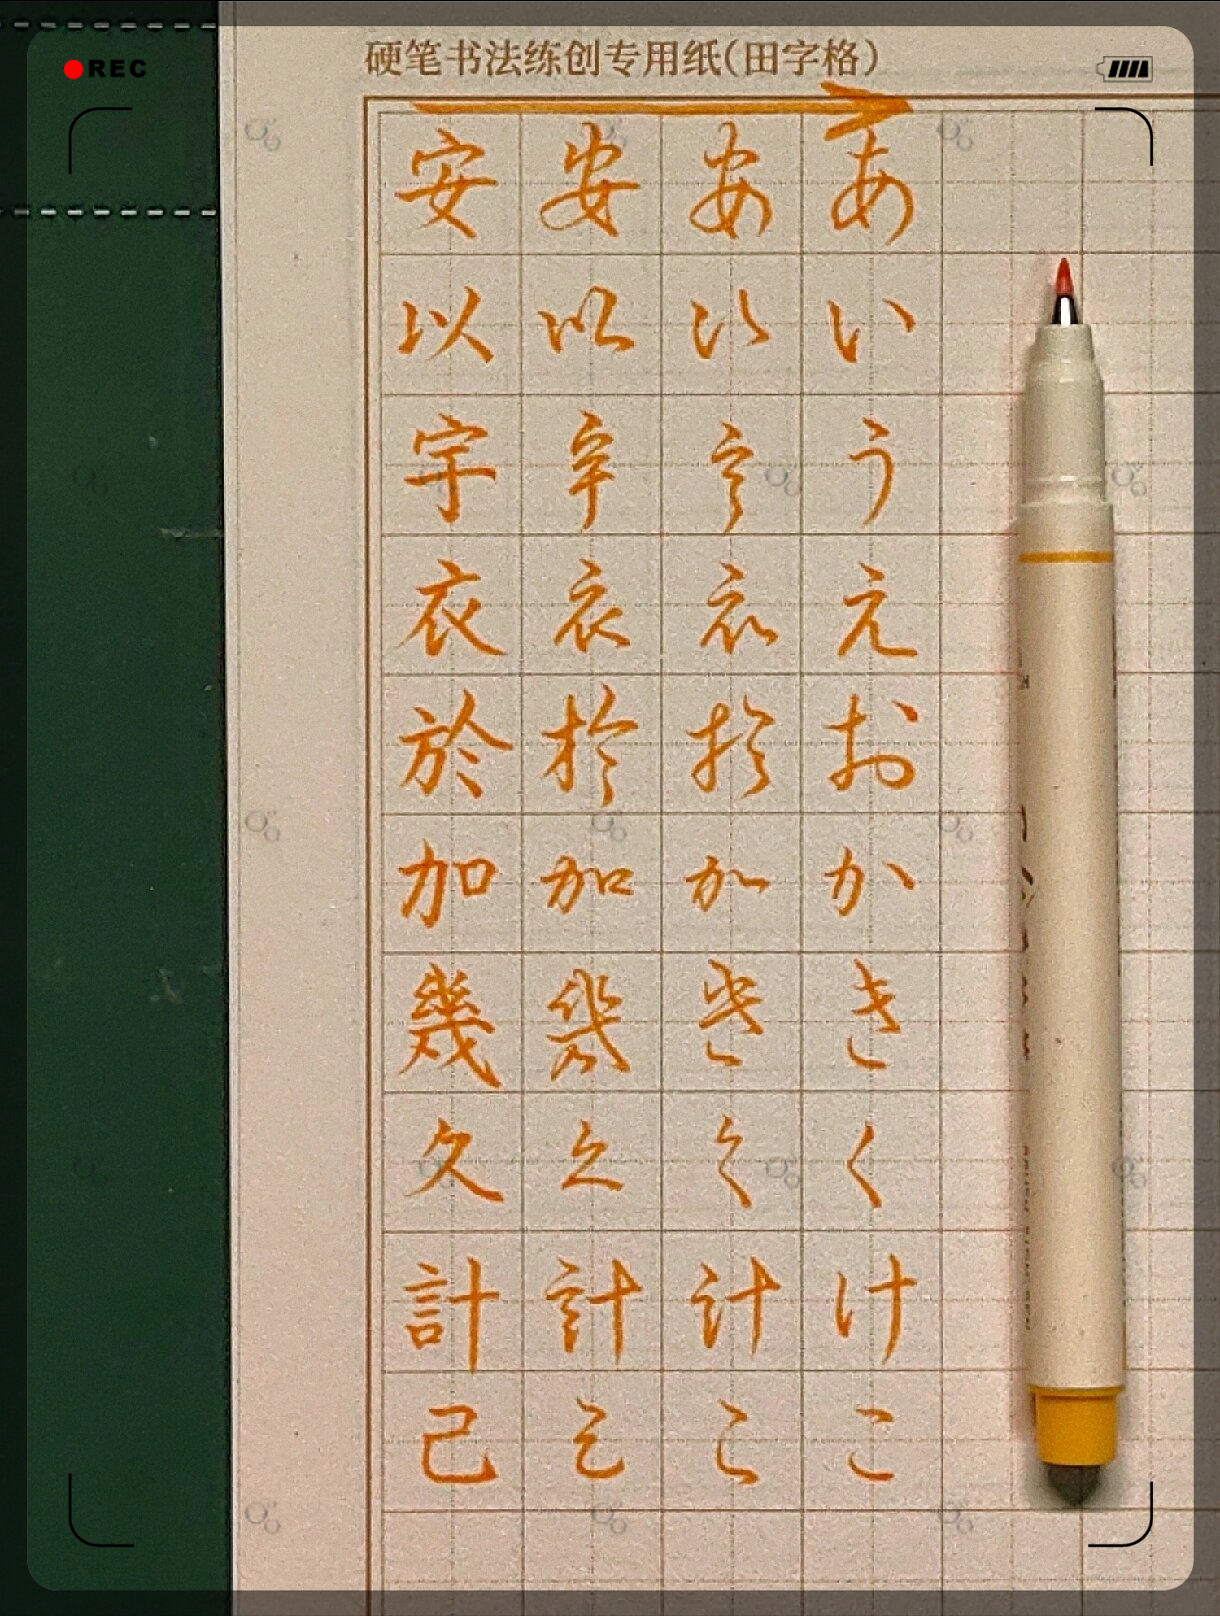 REC
硬笔书法练创专用纸(田字格)
安 安 安 あ
以 以 以 い
宇 宇 宇 う
衣 衣 衣 え
於 於 於 お
加 加 加 か
幾 幾 幾 き
久 久 久 く
計 計 計 け
己 己 己 こ